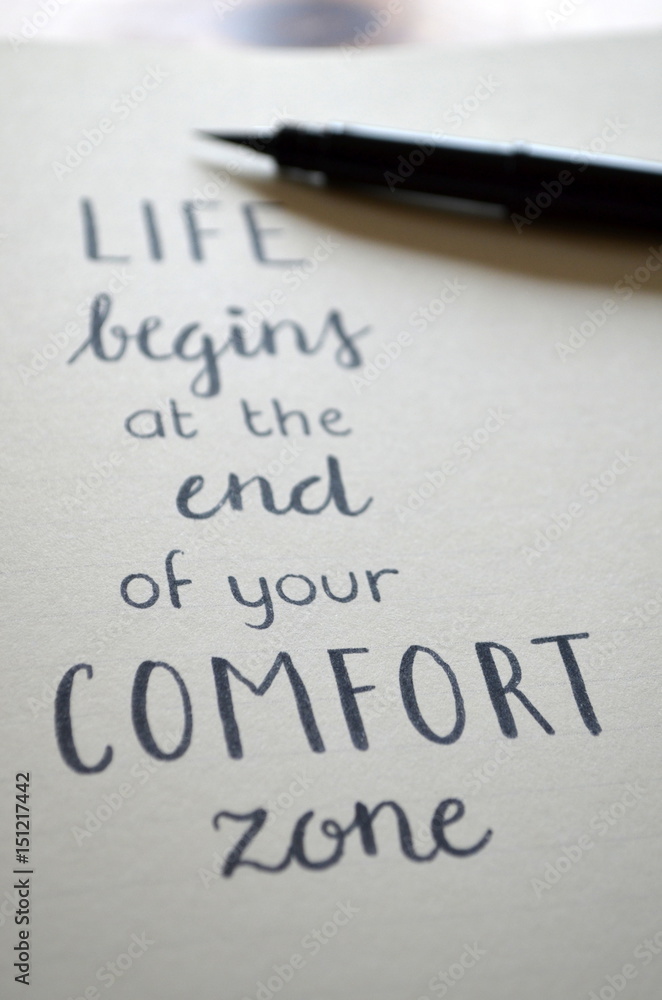 LIFE
begins
at the
end
of your
COMFORT
zone
Adobe Stock | #151217442